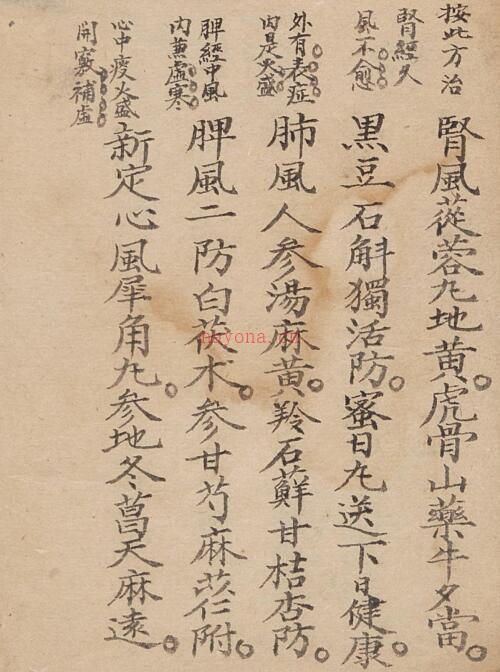 按此方治
腎經久
風不愈
腎風蓯蓉丸地黃。虎骨山藥牛夕當。
黑豆石斛獨活防。蜜日丸送下日健康。
外有表症
内是火盛
肺風人參湯麻黃。羚石蘚甘桔杏防。
脾經中風
内兼虛寒
脾風二防白茯朮。參甘芍麻苡仁附。
心中痰火盛
開竅補虛
新定心風犀角丸。參地冬菖天麻遠。